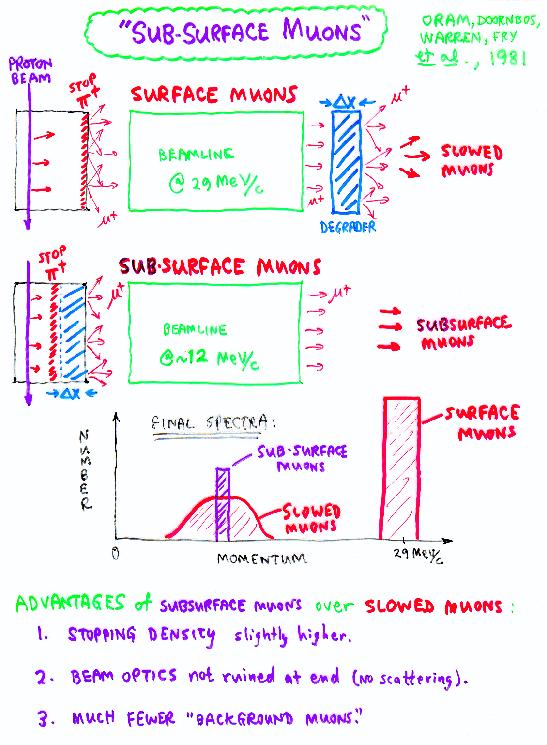 "SUB-SURFACE MUONS"
ORAM, DOORNBOS,
WARREN, FRY
et al., 1981
PROTON
BEAM
STOP
π+
SURFACE MUONS
BEAMLINE
@ 29 MeV/c
μ+
μ+
ΔX
μ+
DEGRADER
SLOWED
MUONS
STOP
π+
SUB-SURFACE MUONS
μ+
BEAMLINE
@~12 MeV/c
μ+
SUBSURFACE
MUONS
ΔX
FINAL SPECTRA:
NUMBER
SUB-SURFACE
MUONS
SLOWED
MUONS
SURFACE
MUONS
0
MOMENTUM
29 MeV/c
ADVANTAGES of SUBSURFACE MUONS over SLOWED MUONS:
1. STOPPING DENSITY slightly higher.
2. BEAM OPTICS not ruined at end (NO scattering).
3. MUCH FEWER "BACKGROUND MUONS."